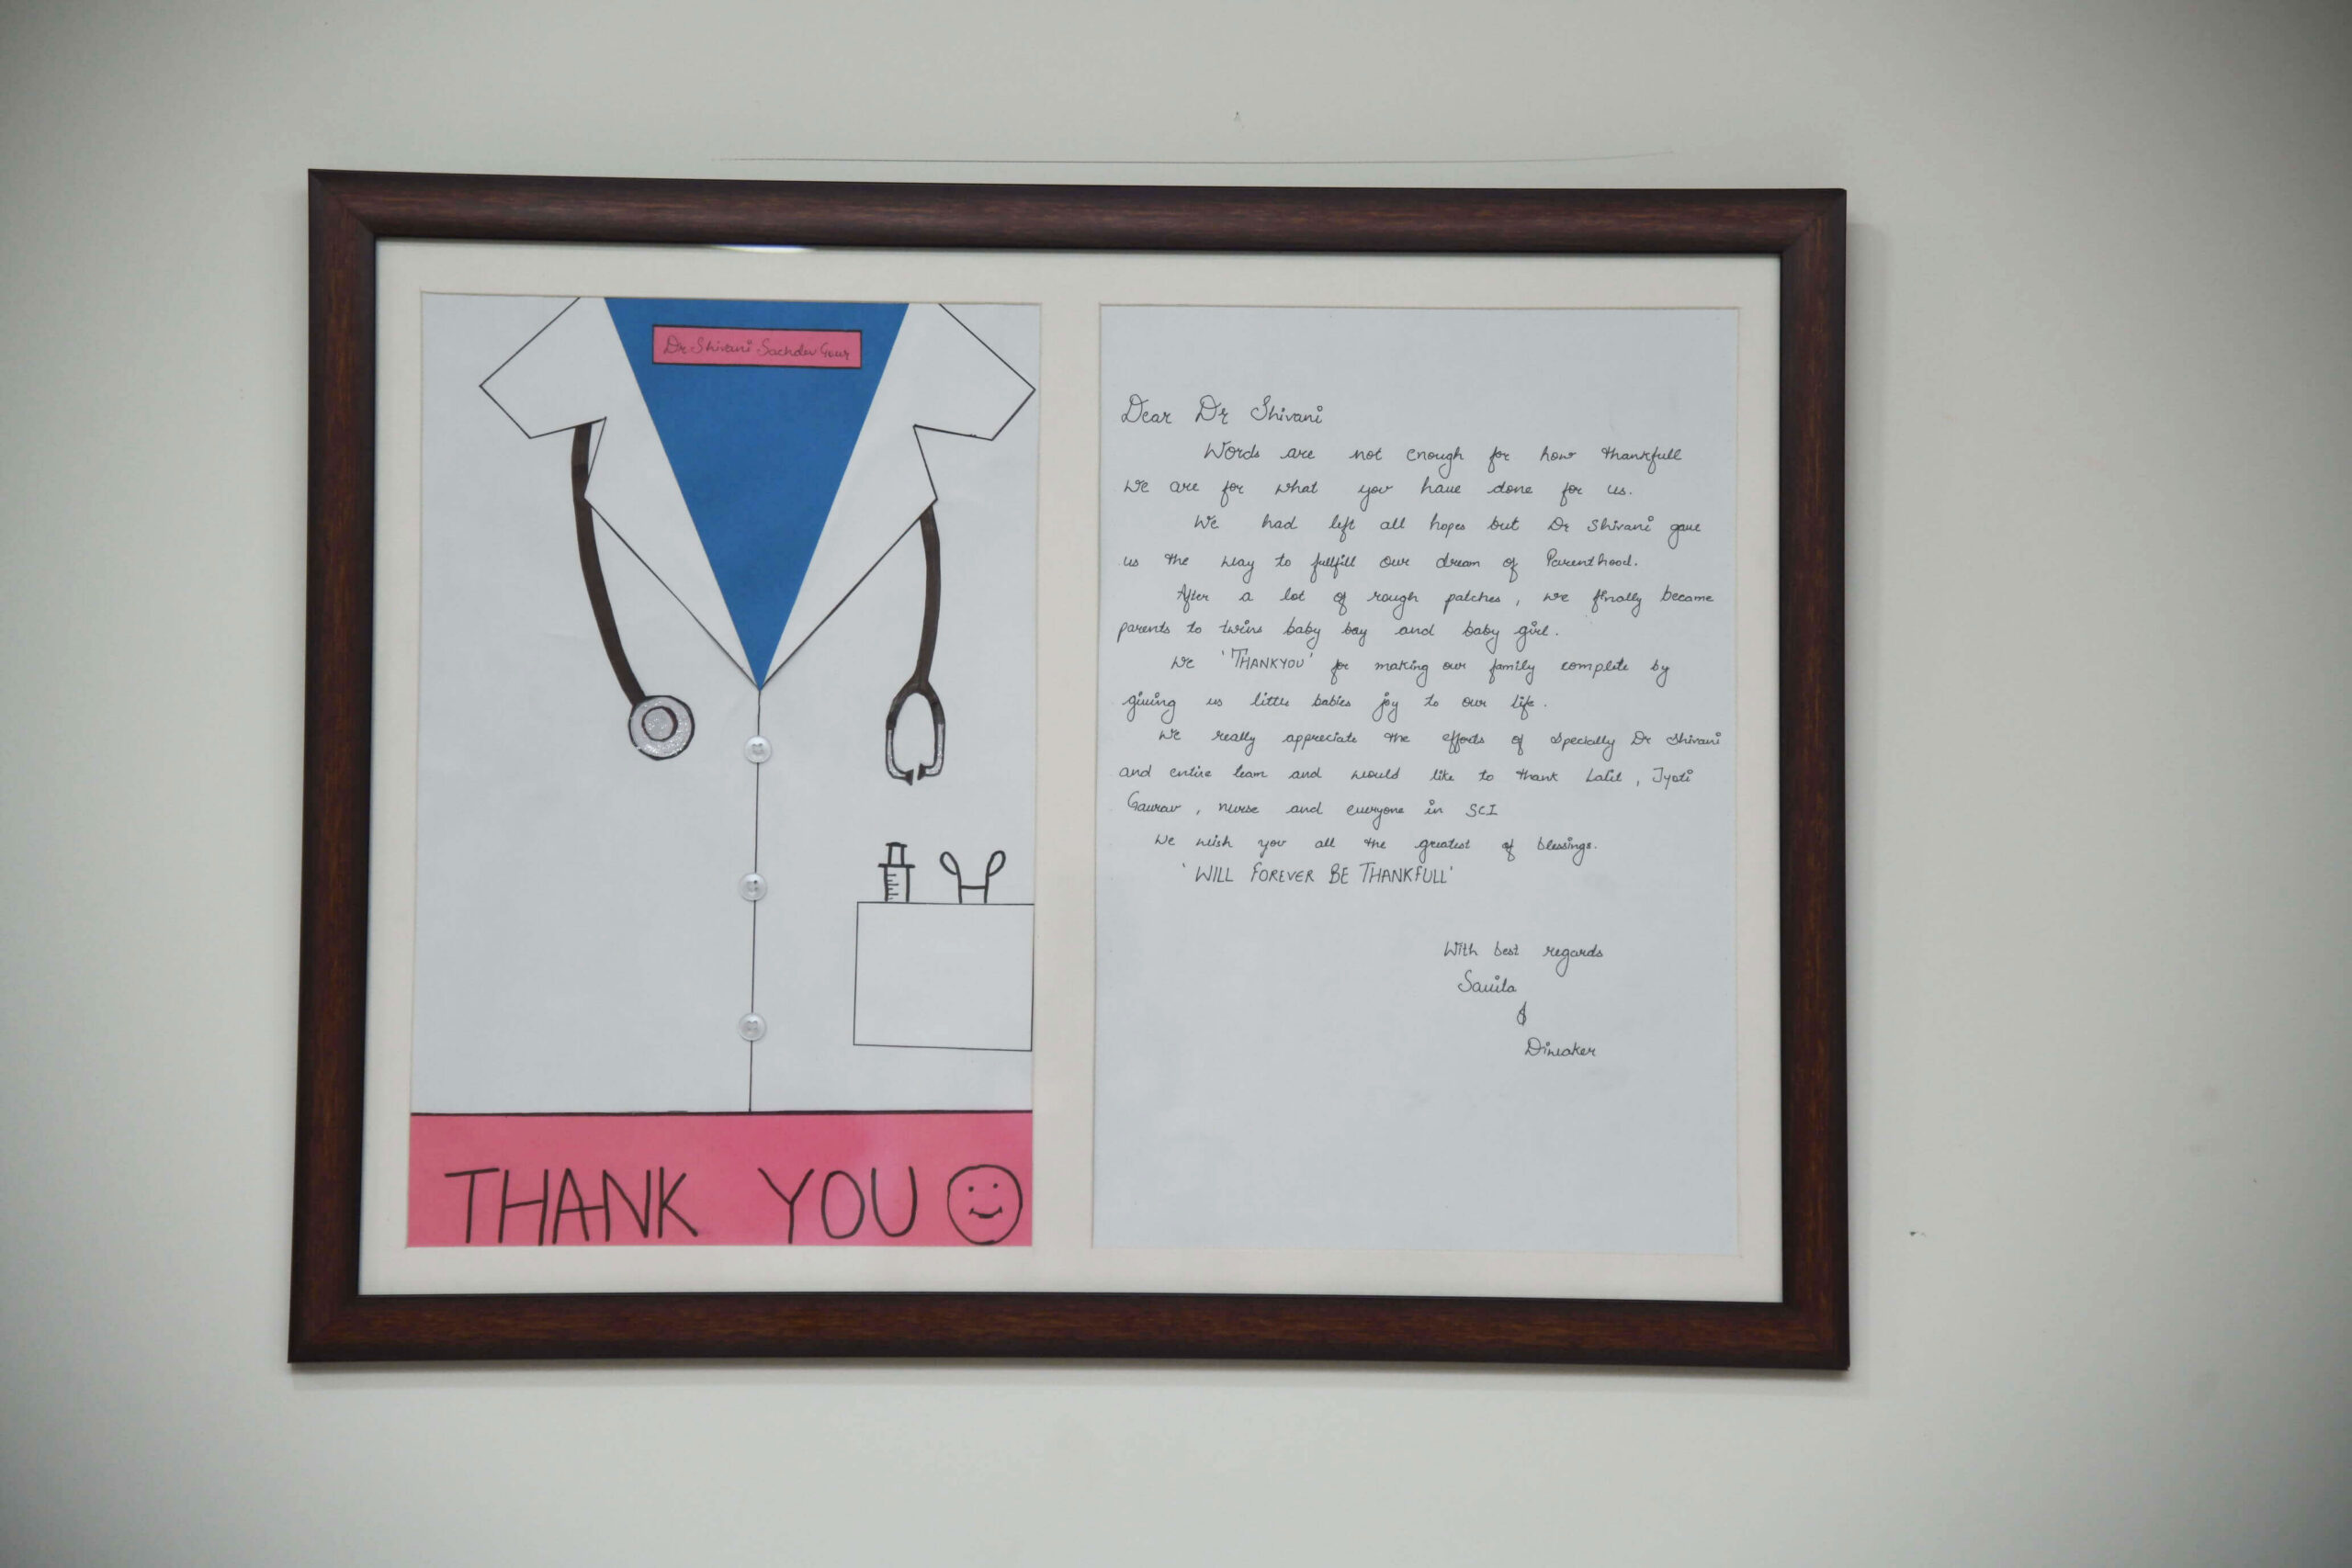 Dr. Shivani Sachdev Gour
THANK YOU
Dear Dr Shivani
Words are not enough for how thankfull
we are for what you have done for us.
We had left all hopes but Dr Shivani gave
us the way to fullfill our dream of Parenthood.
After a lot of rough patches, we finally became
parents to twins baby boy and baby girl.
We 'THANKYOU' for making our family complete by
giving us little babies joy to our life.
We really appreciate the efforts of specially Dr Shivani
and entire team and would like to thank Lalit, Jyoti
Gaurav, nurse and everyone in SCI
We wish you all the greatest of blessings.
'WILL FOREVER BE THANKFULL'
With best regards
&
Diwaker